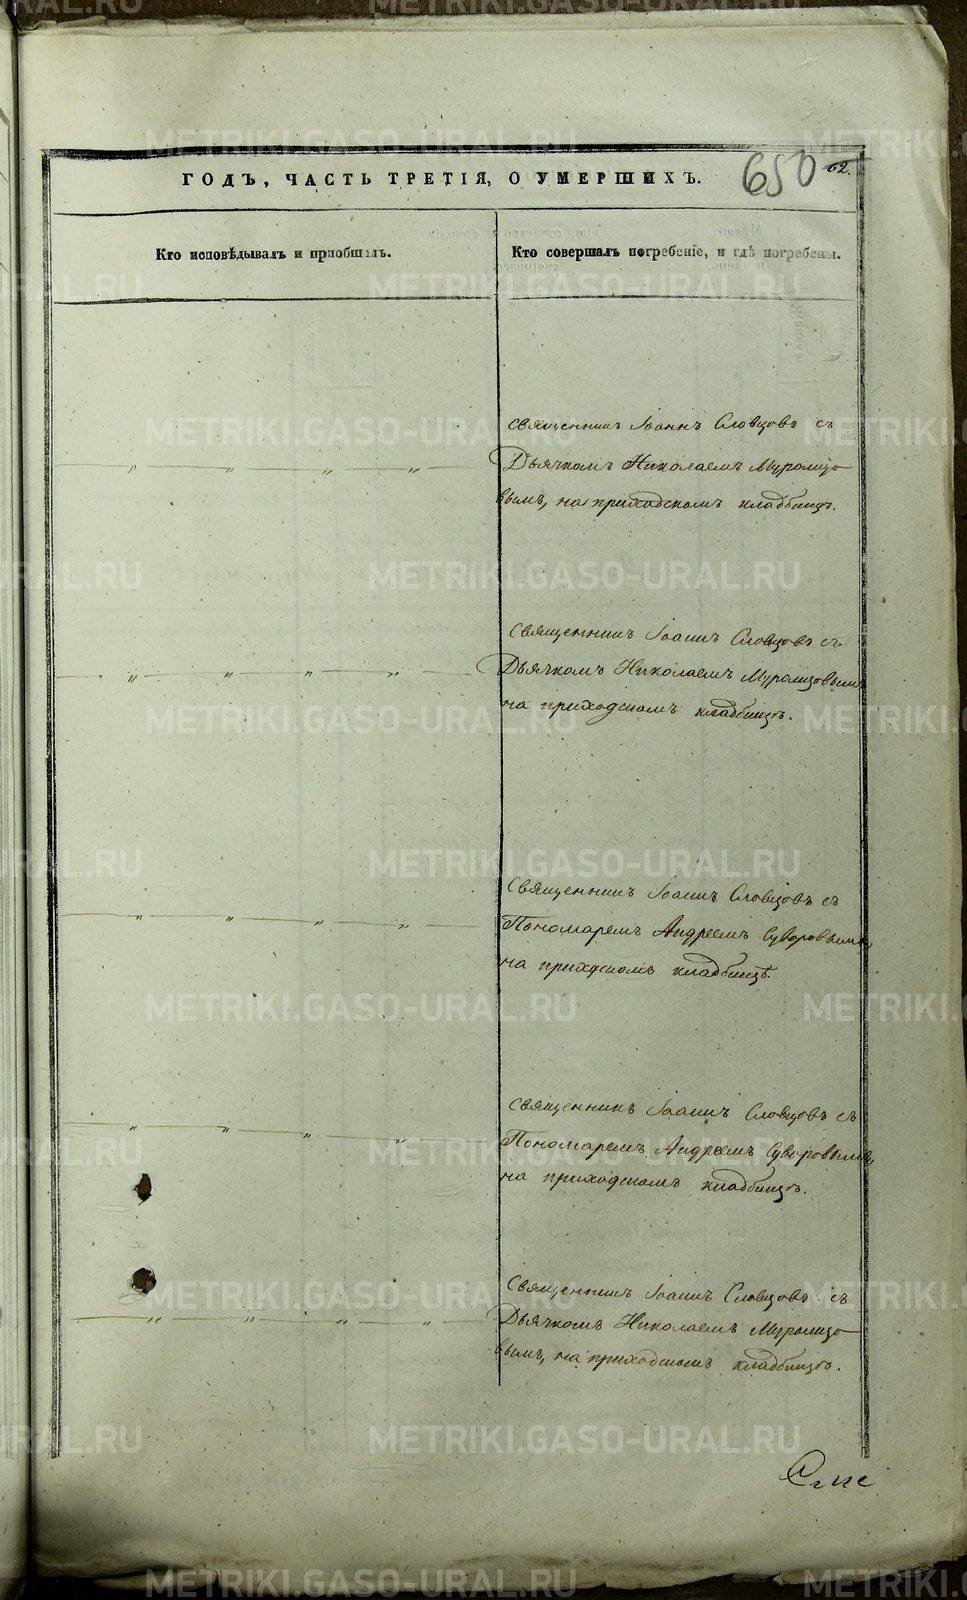 ГОДЪ, ЧАСТЬ ТРЕТІЯ, О УМЕРШИХЪ.
650
62.
Кто исповѣдывалъ и пріобщалъ.
Кто совершалъ погребеніе, и гдѣ погребены.
Священникъ Іоаннъ Словцовъ съ
" " " "
Дьячкомъ Николаемъ Муромцо
вымъ, на приходскомъ кладбищѣ.
Священникъ Іоаннъ Словцовъ съ
" " " "
Дьячкомъ Николаемъ Муромцовымъ
на приходскомъ кладбищѣ.
Священникъ Іоаннъ Словцовъ съ
" " " "
Пономаремъ Андреемъ Суворовымъ,
на приходскомъ кладбищѣ.
Священникъ Іоаннъ Словцовъ съ
" " " "
Пономаремъ Андреемъ Суворовымъ,
на приходскомъ кладбищѣ.
Священникъ Іоаннъ Словцовъ съ
" " " "
Дьячкомъ Николаемъ Муромцо
вымъ, на приходскомъ кладбищѣ.
METRIKI.GASO-URAL.RU